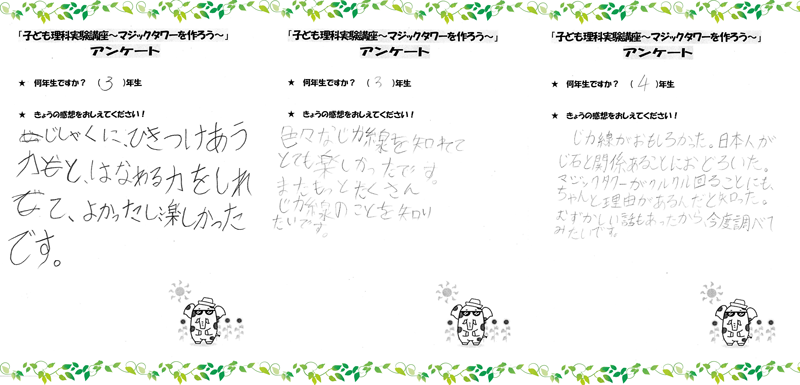 「子ども理科実験講座~マジックタワーを作ろう~」
アンケート
★ 何年生ですか? ( 3 )年生
★ きょうの感想をおしえてください!
じしゃくに、ひきつけあう
力と、はなれる力をしれ
て、よかったし、楽しかった
です。
「子ども理科実験講座~マジックタワーを作ろう~」
アンケート
★ 何年生ですか? ( 3 )年生
★ きょうの感想をおしえてください!
色々なじ力線を知れて
とても楽しかったです。
またもっとたくさん
じ力線のことを知り
たいです。
「子ども理科実験講座~マジックタワーを作ろう~」
アンケート
★ 何年生ですか? ( 4 )年生
★ きょうの感想をおしえてください!
じ力線がおもしろかった。日本人が
じ石と関係あることにおどろいた。
マジックタワーがクルクル回ることにも、
ちゃんと理由があるんだと知った。
むずかしい話もあったから、今度調べて
みたいです。